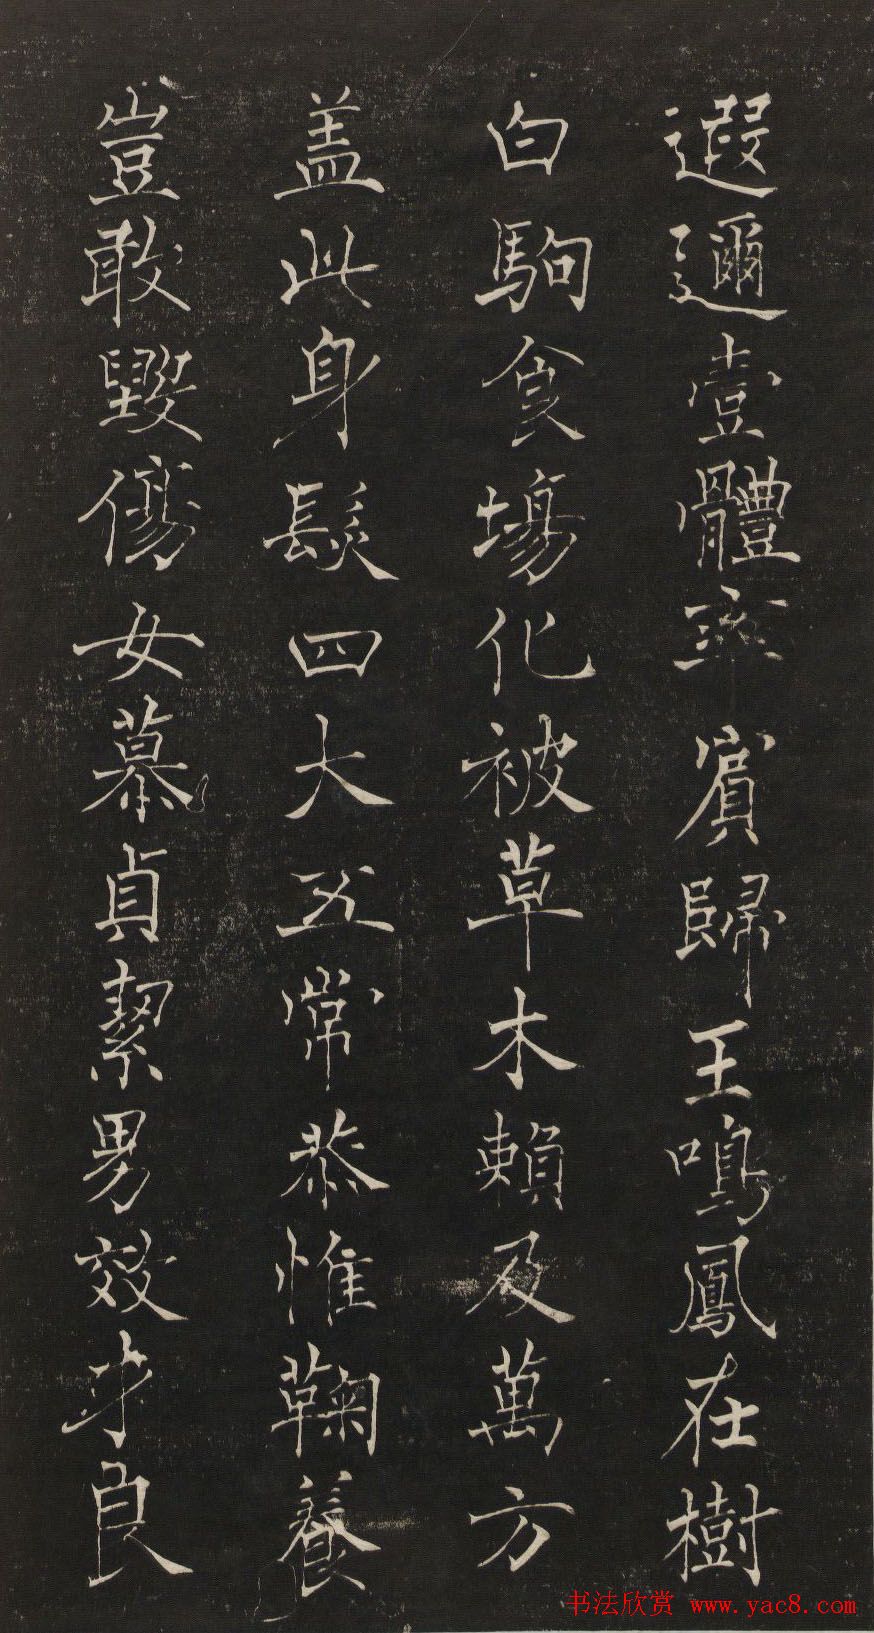 遐邇壹體率賓歸王鳴鳳在樹
白駒食場化被草木賴及萬方
盖此身髮四大五常恭惟鞠養
豈敢毀傷女慕貞絜男效才良
书法欣赏 www.yac8.com